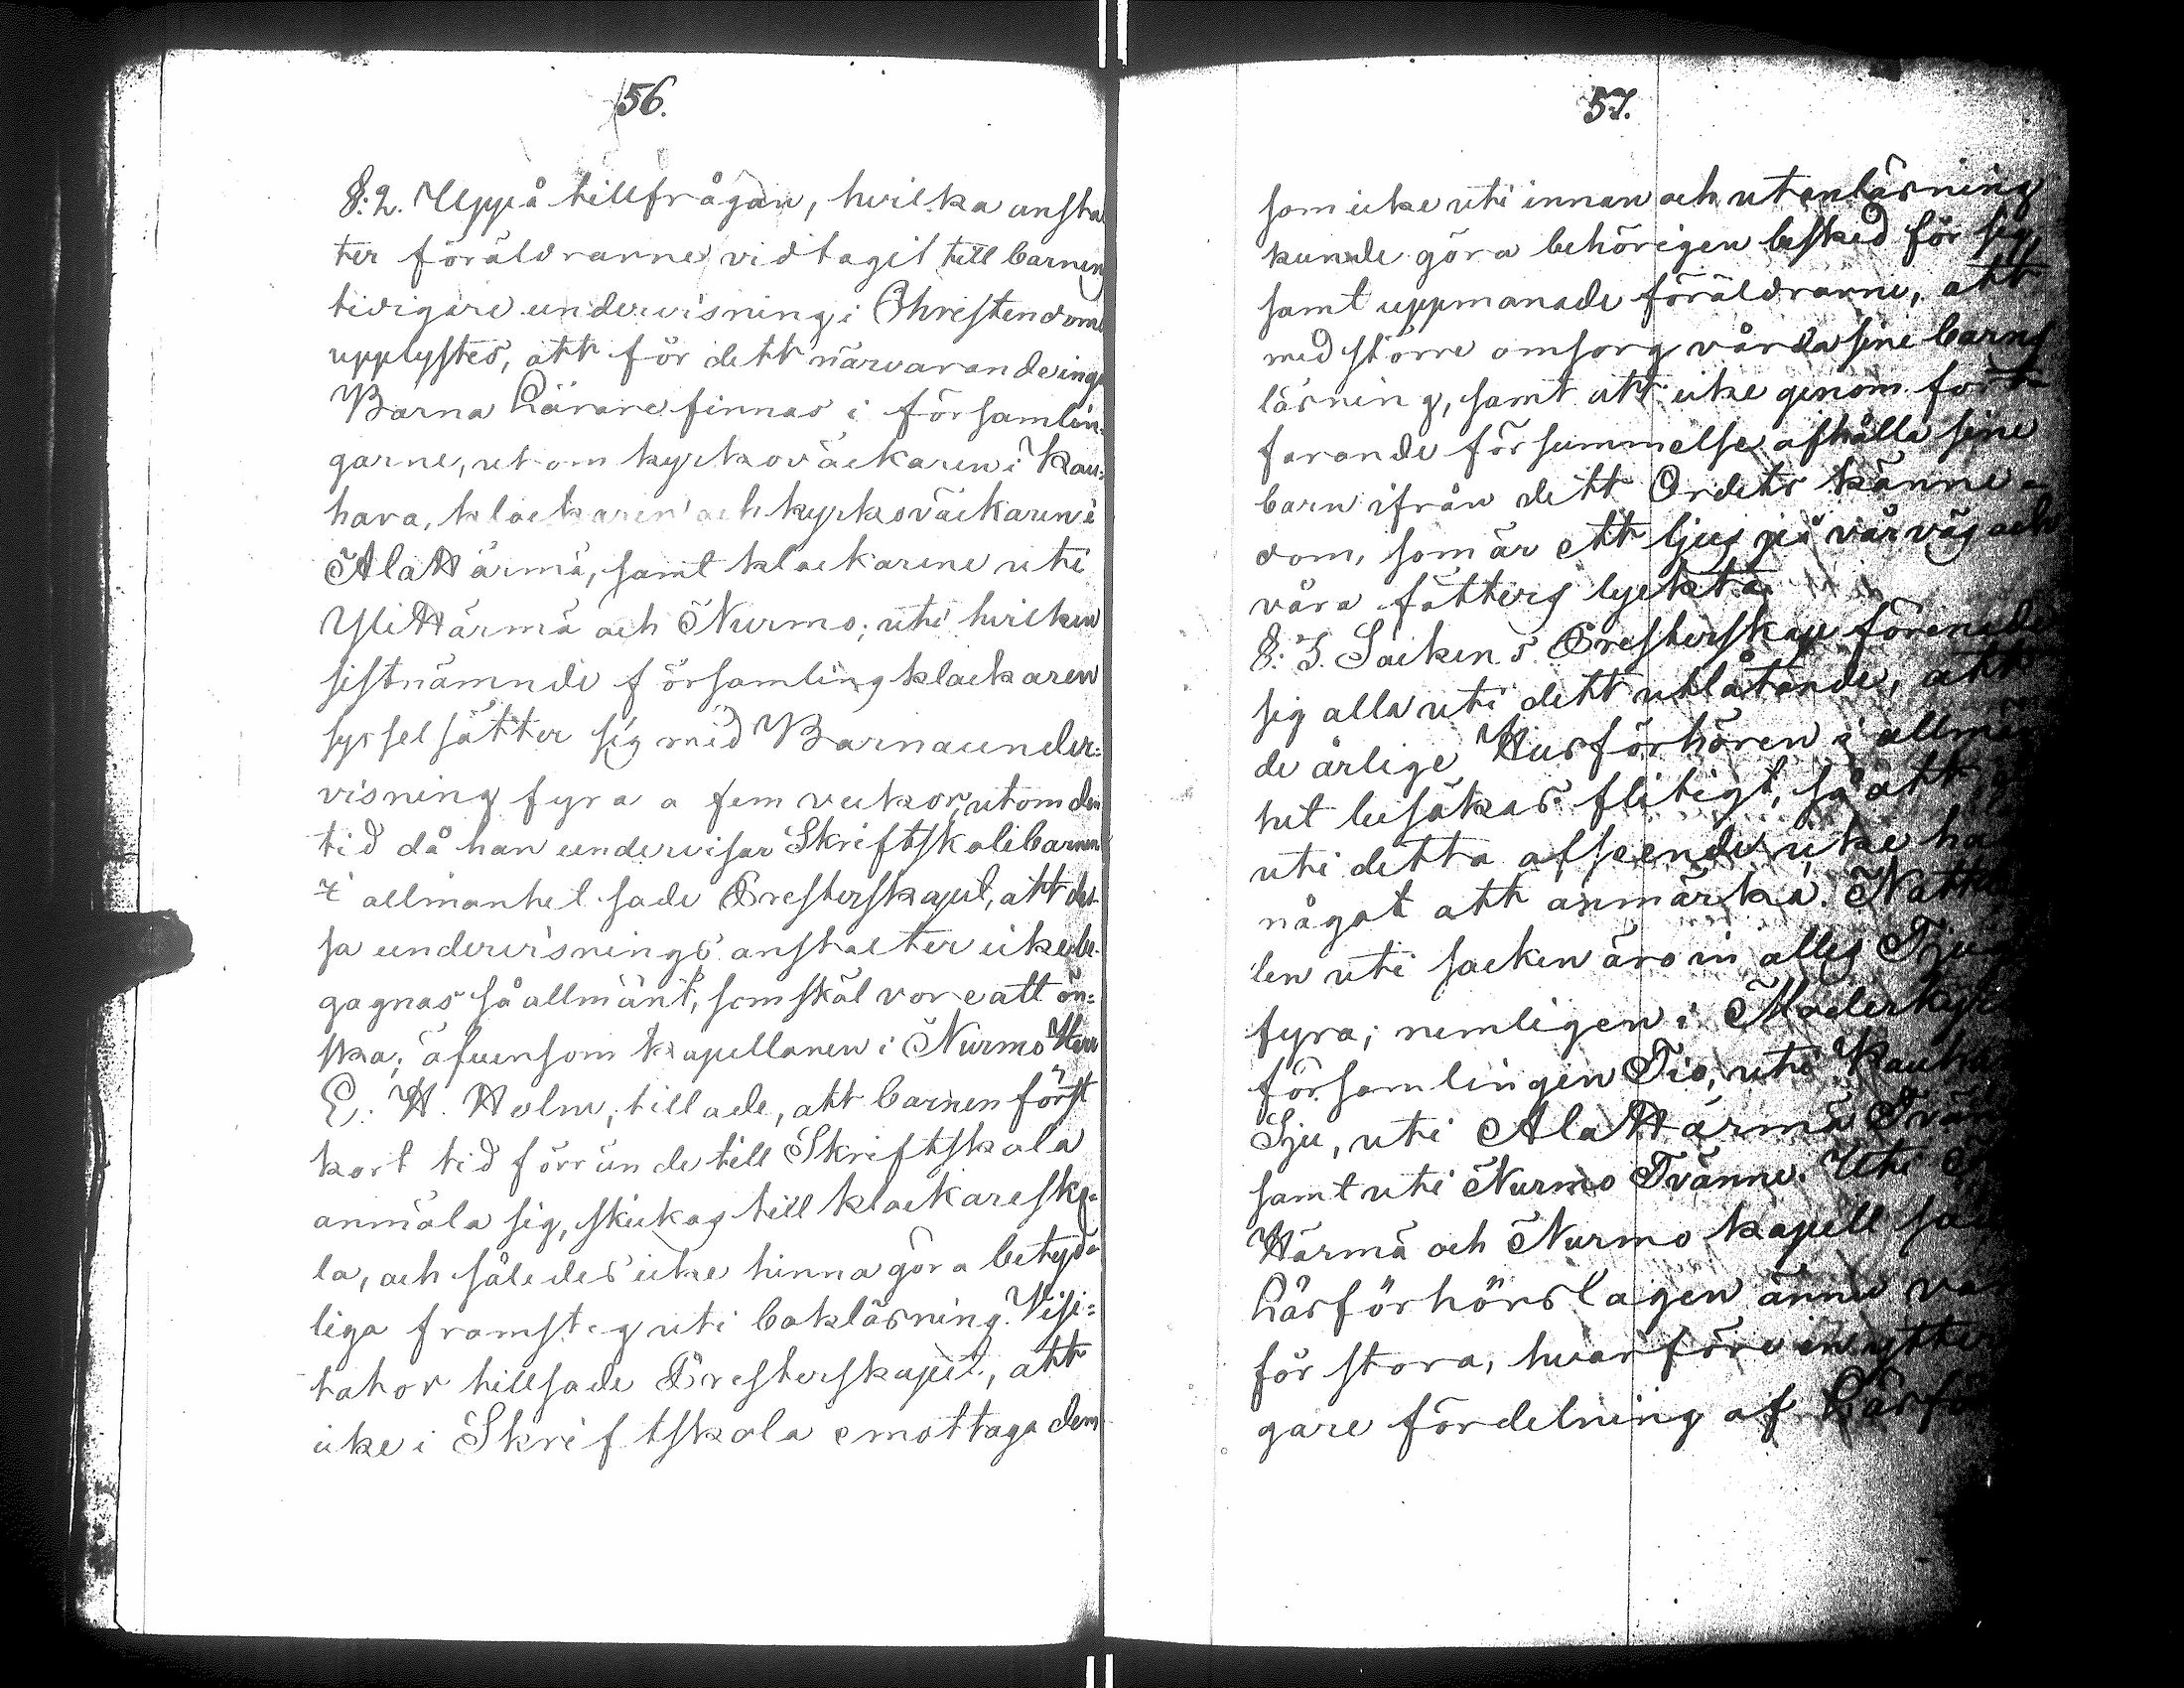 56.
§: 2. Uppå tillfrågan, hvilka anstal
ter föräldrarne vidtagit till barnens
tidigare undervisning i Christendom
upplystes, att för dett närvarande inga
Barna Lärare finnas i församlin-
garne, utom kyrkoväckaren i Kau-
hava, klockaren och kyrkoväckaren i
Ala Härmä, samt klockarene uti
Yli Härmä och Nurmo; uti hvilken
sistnämnde församling klockaren
sysselsätter sig med Barnaunder=
visning fyra a fem veckor, utom den
tid då han undervisar Skriftskolebarnen
I allmänhet sade Presterskapet, att des-
sa undervisnings anstalter icke be-
gagnas så allmänt, som skäl vore att ön=
ska; äfvensom kapellanen i Nurmo Herr
E. H. Holm, tillade, att barnen först
kort tid förrän de till Skriftskola
anmäla sig, skickas till klockaresko=
la, och således icke hinna göra betyd=
liga framsteg uti bokläsning. Visi=
tator tillsade Presterskapet, att
icke i Skriftskola emottaga dem
57.
som icke uti innan och utanläsning
kunde göra behörigen besked för sig,
samt uppmanade föräldrarne, att
med större omsorg vårda sine barns
läsning, samt att icke genom fort=
farande försummelse afhålla sine
barn ifrån dett Ordets känne=
dom, som är ett ljus på vår väg och
våra fötters lyckta.
§: 3. Socken s Presterskap förenade
sig alla uti dett utlåtande, att
de årlige Husförhören i allmän
het besökas flitigt, så att
uti detta afseende icke ha
något att anmärka.
len uti socken äro in alles Tju
fyra; nemligen i Moderkyrko
församlingen Tio, uti Kauhava
Sju, uti Ala Härmä Trän
samt uti Nurmo Tvänne. Uti
Härmä och Nurmo kapell
Läsförhörslagen ännu va
för stora, hvarföre en ytter
gare fördelning af Läsför